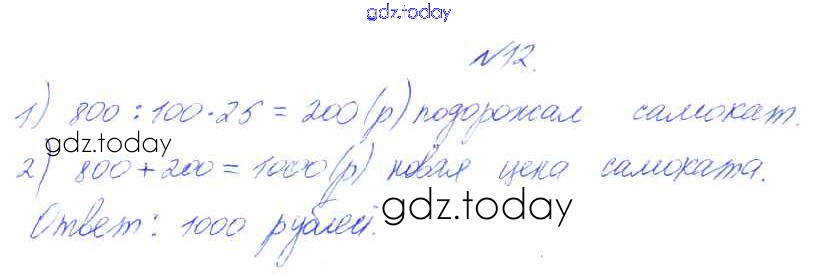 gdz.today
№12.
1) 800 : 100 · 25 = 200 (р) подорожал самокат.
gdz.today
2) 800 + 200 = 1000 (р) новая цена самоката.
Ответ: 1000 рублей.
gdz.today